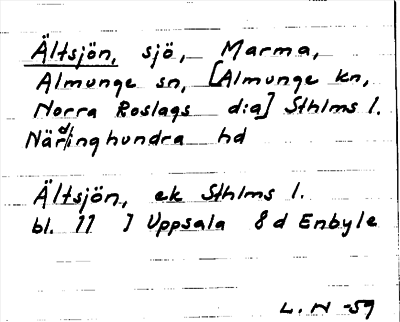 Ältsjön, sjö, Marma,
Almunge sn, [Almunge kn,
Norra Roslags d:a] Sthlms l.
Närdinghundra hd
Ältsjön, ek Sthlms l.
bl. 77 I Uppsala 8 d Enbyle
L. N -59